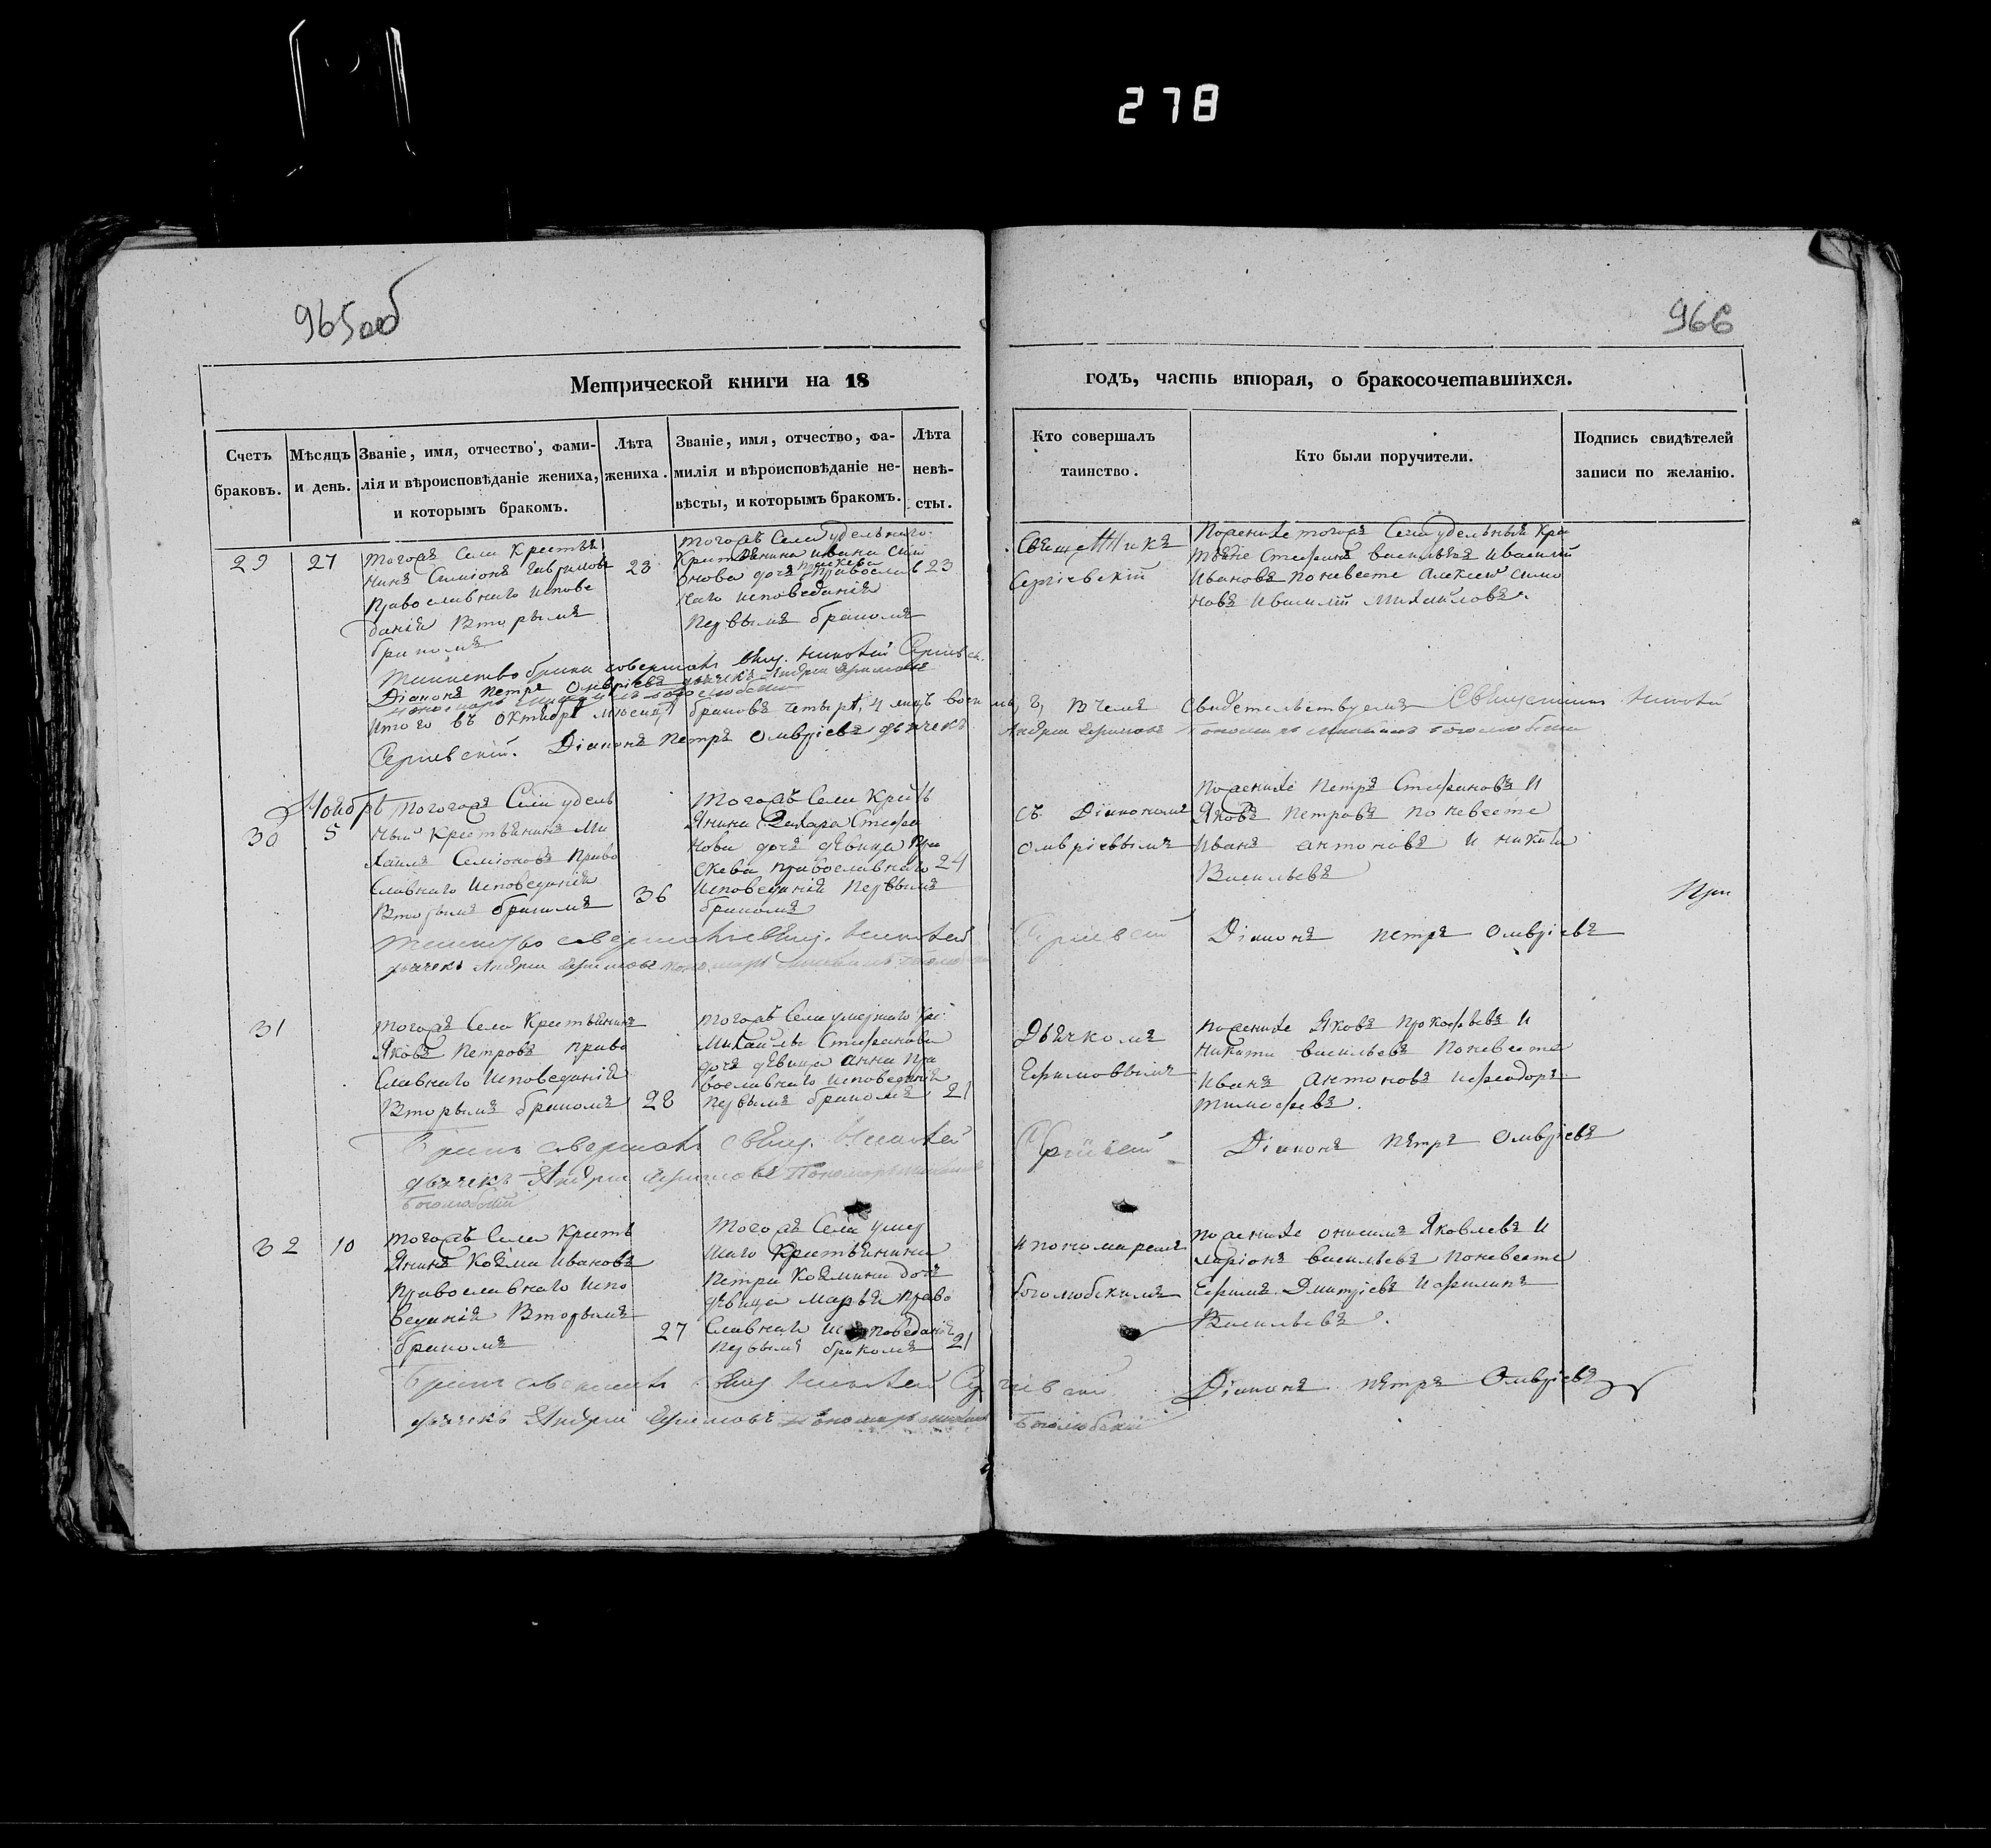 278
965 об
966
Метрической книги на 18 годъ, часть вторая, о бракосочетавшихся.
Счетъ браковъ.
Мѣсяцъ и день.
Званіе, имя, отчество, фами-
лія и вѣроисповѣданіе жениха,
и которымъ бракомъ.
Лѣта
жениха.
Званіе, имя, отчество, фа-
милія и вѣроисповѣданіе не-
вѣсты, и которымъ бракомъ.
Лѣта
невѣ-
сты.
Кто совершалъ
таинство.
Кто были поручители.
Подпись свидѣтелей
записи по желанію.
29
27
Тогожъ Села Крестья
нинъ Семіонъ Гаврилове
Православнаго Испове
данія Вторымъ
бракомъ
23
Тогожъ Села Удельнаго
Крестьянина Ивана Сими
онова дочь Православ
наго исповеданія
Первымъ бракомъ
23
Священникъ
Сергіевскій
По женихе тогожъ Села удельныи Кре
тьяне Стефанъ Васильевъ И Василій
Ивановъ по невесте Алексей Симо
новъ И Василій Михайловъ.
Таинство брака совершалъ Свящ. Сергіевск.
Діаконъ Петръ Олвріевъ дьячекъ Андрей Ефимовъ
Итого въ Октябрѣ месяцѣ браковъ четыре, 4 лицъ восемь, 8, В чемъ Свидетельствуемъ Священникъ
Сергіевскій. Діаконъ Петръ Олвріевъ дьячекъ Андрей Ефимовъ
Ноябрь
30
5
Тогожъ Села удель
ный Крестьянинъ Ми
хаилъ Семіоновъ Право
Славнаго Исповеданія
Вторымъ бракомъ
36
Тогожъ Села Кресть
янина Захара Стефа
нова дочь дѣвица Пра
скева православнаго
Исповеданія Первымъ
бракомъ
24
Съ Діакономъ
Олвріевымъ
По женихе Петръ Стефановъ И
Яковъ Петровъ по невесте
Иванъ Антоновъ И Никита
Васильевъ
При
Таинство совершалъ Свящ. Сергіевский Діаконъ Петръ Олвріевъ
дьячекъ Андрей Ефимовъ
31
Тогожъ Села Крестьянинъ
Яковъ Петровъ Право
Славнаго Исповеданія
Вторымъ бракомъ
28
Тогожъ Села умершаго Кре.
Михайлы Стефанова
дочь дѣвица Анна Пра
вославнаго Исповеданія
первымъ бракомъ
21
Дьячкомъ
Ефимовымъ
По женихе Яковъ Прокофьевъ И
Никита Васильевъ По невесте
Иванъ Антоновъ и Феодоръ
Тимофеевъ.
Бракъ совершалъ Свящ. Сергіевский Діаконъ Петръ Олвріевъ
дьячекъ Андрей Ефимовъ Пономарь
Боголюбский
32
10
Тогожъ Села Кресть
янинъ Козма Ивановъ
Православнаго Испо
веданія Вторымъ
бракомъ
27
Тогожъ Села умер
шаго Крестьянина
Петра Козмина дочь
дѣвица Марья Право
Славнаго Исповеданія
Первымъ бракомъ
21
И пономаремъ
Боголюбскимъ
По женихе Онисимъ Яковлевъ И
Ларіонъ Васильевъ По невесте
Ефимъ Дмитріевъ И Филипъ
Васильевъ.
Бракъ совершалъ Свящ. Сергіевский Діаконъ Петръ Олвріевъ
дьячекъ Андрей Ефимовъ Пономарь Боголюбский